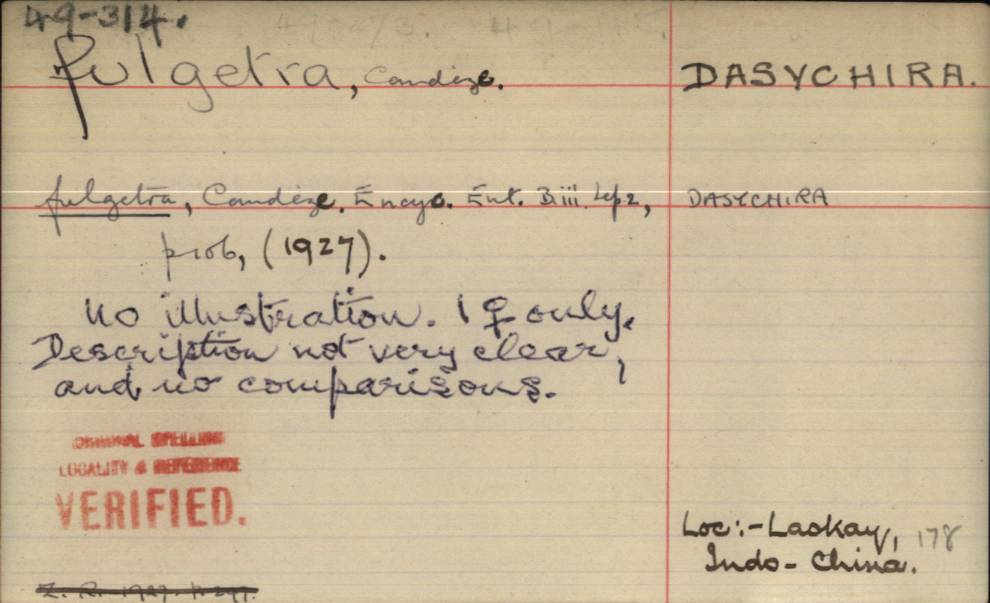 49-314.
fulgetra, Candèze. DASYCHIRA.
fulgetra, Candèze. Encyc. Ent. B.iii. Lep. 2, DASYCHIRA
prob, (1927).
No illustration. 1 ♀ only.
Description not very clear,
and no comparisons.
ORIGINAL SPELLING
LOCALITY & REFERENCE
VERIFIED.
Loc:- Laokay, 178
Indo-China.
Z. R. 1927. p. 297.